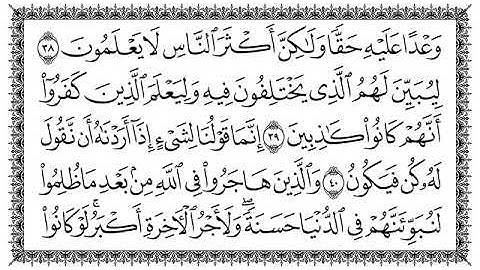 وَعْدًا عَلَيْهِ حَقًّا وَلَٰكِنَّ أَكْثَرَ ٱلنَّاسِ لَا يَعْلَمُونَ ٣٨
لِيُبَيِّنَ لَهُمُ ٱلَّذِى يَخْتَلِفُونَ فِيهِ وَلِيَعْلَمَ ٱلَّذِينَ كَفَرُوٓا۟
أَنَّهُمْ كَانُوا۟ كَٰذِبِينَ ٣٩ إِنَّمَا قَوْلُنَا لِشَىْءٍ إِذَآ أَرَدْنَٰهُ أَن نَّقُولَ
لَهُۥ كُن فَيَكُونُ ٤٠ وَٱلَّذِينَ هَاجَرُوا۟ فِى ٱللَّهِ مِنۢ بَعْدِ مَا ظُلِمُوا۟
لَنُبَوِّئَنَّهُمْ فِى ٱلدُّنْيَا حَسَنَةً ۖ وَلَأَجْرُ ٱلْءَاخِرَةِ أَكْبَرُ ۚ لَوْ كَانُوا۟